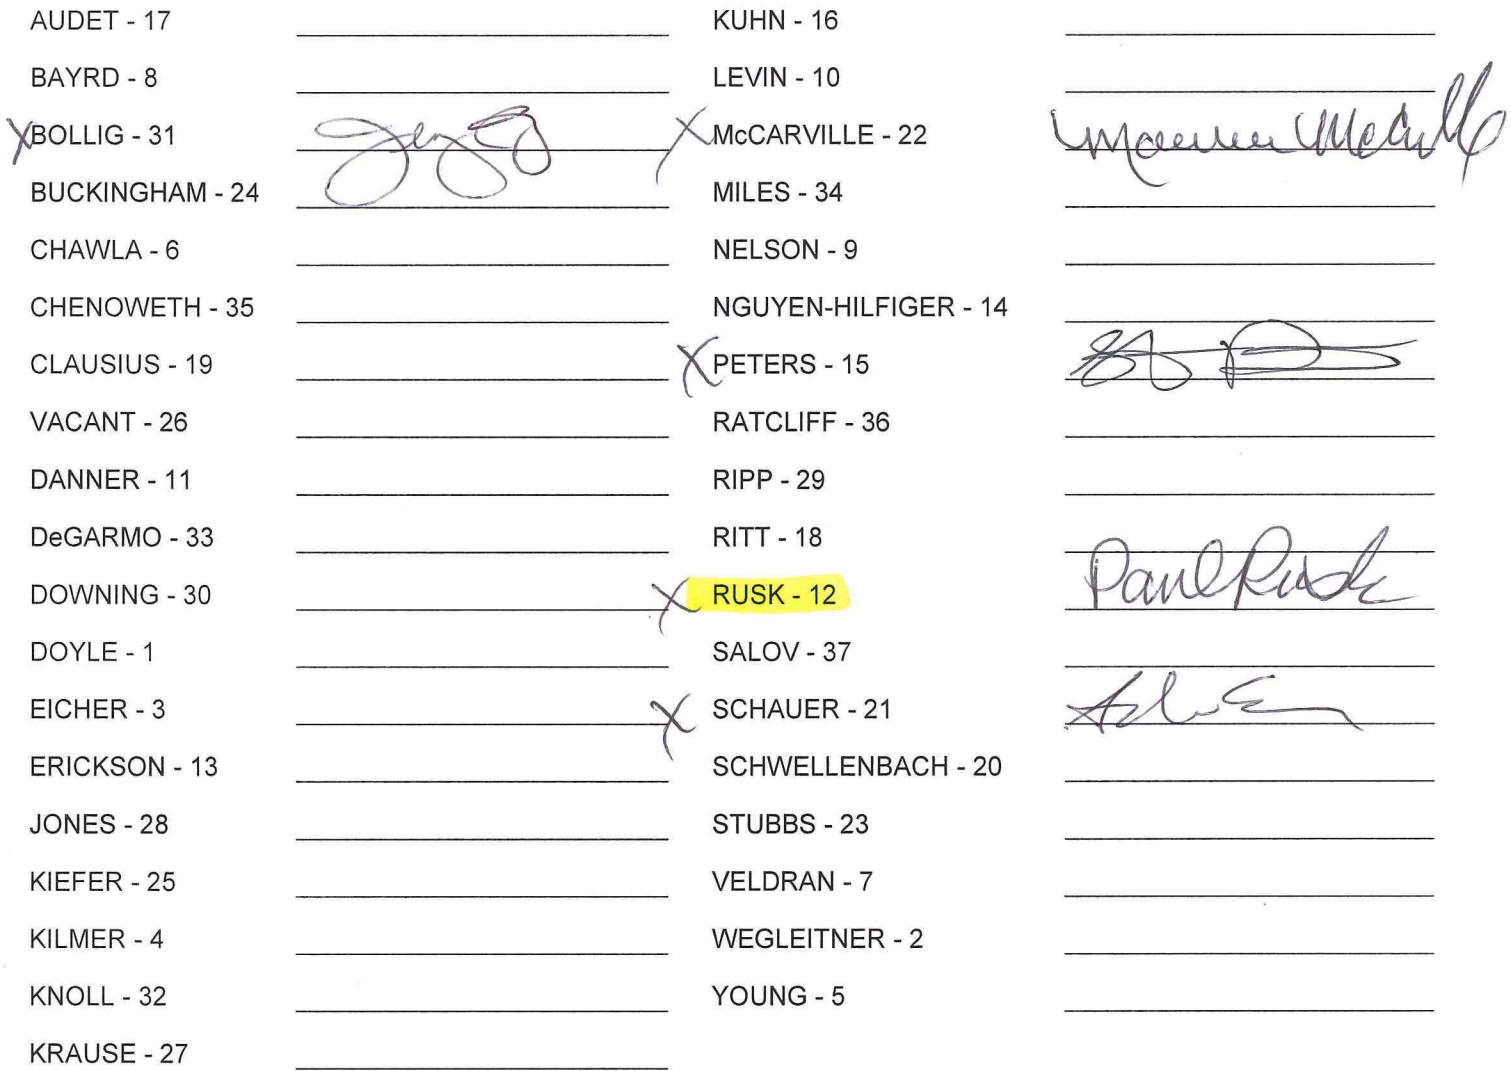 AUDET - 17
BAYRD - 8
X BOLLIG - 31
BUCKINGHAM - 24
CHAWLA - 6
CHENOWETH - 35
CLAUSIUS - 19
VACANT - 26
DANNER - 11
DeGARMO - 33
DOWNING - 30
DOYLE - 1
EICHER - 3
ERICKSON - 13
JONES - 28
KIEFER - 25
KILMER - 4
KNOLL - 32
KRAUSE - 27
KUHN - 16
LEVIN - 10
X McCARVILLE - 22
MILES - 34
NELSON - 9
NGUYEN-HILFIGER - 14
X PETERS - 15
RATCLIFF - 36
RIPP - 29
RITT - 18
X RUSK - 12 Paul Rusk
SALOV - 37
X SCHAUER - 21
SCHWELLENBACH - 20
STUBBS - 23
VELDRAN - 7
WEGLEITNER - 2
YOUNG - 5